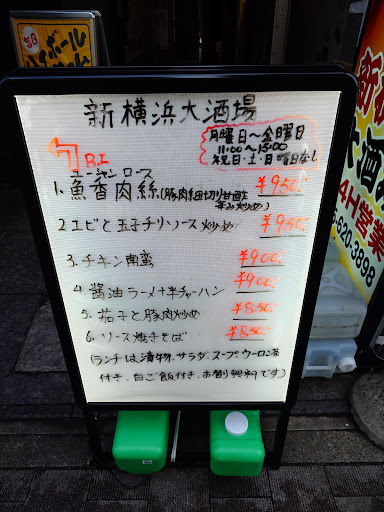 新横浜大酒場
月曜日～金曜日
11:00～15:00
祝日・土・日曜日なし
B.1
ユーシャンロース
1. 魚香肉絲(豚肉細切り甘酢辛み炒め) ¥950
2 エビと玉子チリソース炒め ¥950
3. チキン南蛮 ¥900
4. 醤油ラーメン半チャーハン ¥900
5. 茄子と豚肉炒め ¥850
6. ソース焼きそば ¥850
(ランチは漬物.サラダ.スープ.ウーロン茶
付き.白ご飯付き.お替り無料です)
4H営業
620-3898